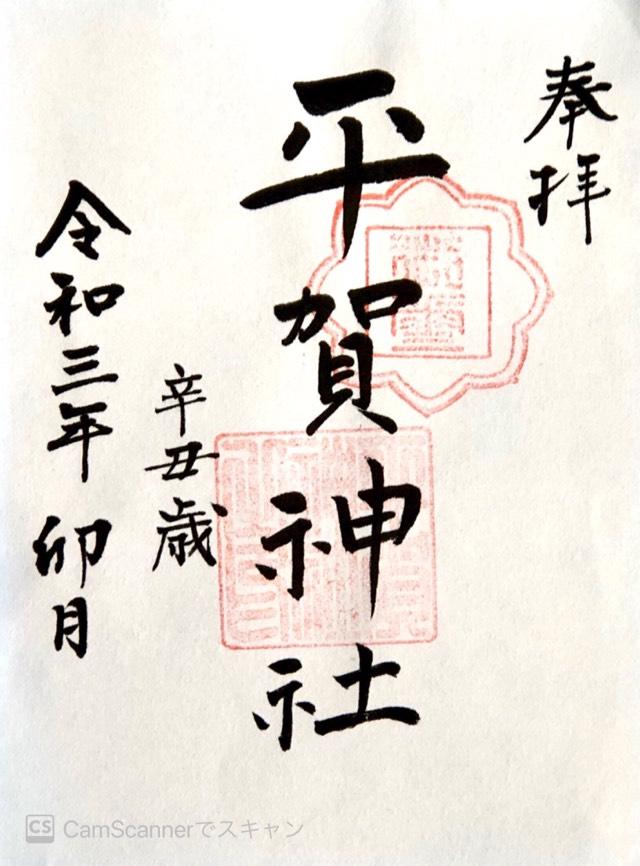 奉拝
平賀神社
辛丑歳
令和三年 卯月
CS CamScannerでスキャン